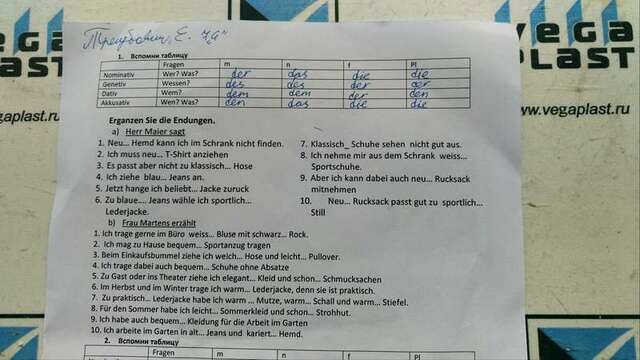 VEGA
PLAST
www.vegaplast.ru
1. Вспомни таблицу
Fragen m n f Pl
Nominativ Wer? Was? der das die die
Genetiv Wessen? des des der der
Dativ Wem? dem dem der den
Akkusativ Wen? Was? den das die die
Erganzen Sie die Endungen.
a) Herr Maier sagt
1. Neu... Hemd kann ich im Schrank nicht finden.
2. Ich muss neu... T-Shirt anziehen
3. Es passt aber nicht zu klassisch... Hose
4. Ich ziehe blau... Jeans an.
5. Jetzt hange ich beliebt... Jacke zuruck
6. Zu blaue.... Jeans wähle ich sportlich...
Lederjacke.
7. Klassisch_ Schuhe sehen nicht gut aus.
8. Ich nehme mir aus dem Schrank weiss...
Sportschuhe.
9. Aber ich kann dabei auch neu... Rucksack
mitnehmen
10. Neu... Rucksack passt gut zu sportlich...
Still
b) Frau Martens erzählt
1. Ich trage gerne im Büro weiss... Bluse mit schwarz... Rock.
2. Ich mag zu Hause bequem... Sportanzug tragen
3. Beim Einkaufsbummel ziehe ich weich... Hose und leicht... Pullover.
4. Ich trage dabei auch bequem... Schuhe ohne Absatze
5. Zu Gast oder ins Theater ziehe ich elegant... Kleid und schon... Schmucksachen
6. Im Herbst und im Winter trage ich warm... Lederjacke, denn sie ist praktisch.
7. Zu praktisch... Lederjacke habe ich warm ... Mutze, warm... Schall und warm... Stiefel.
8. Für den Sommer habe ich leicht... Sommerkleid und schon... Strohhut.
9. Ich habe auch bequem... Kleidung für die Arbeit im Garten
10. Ich arbeite im Garten in alt... Jeans und kariert... Hemd.
2. Вспомни таблицу
Fragen m n f Pl